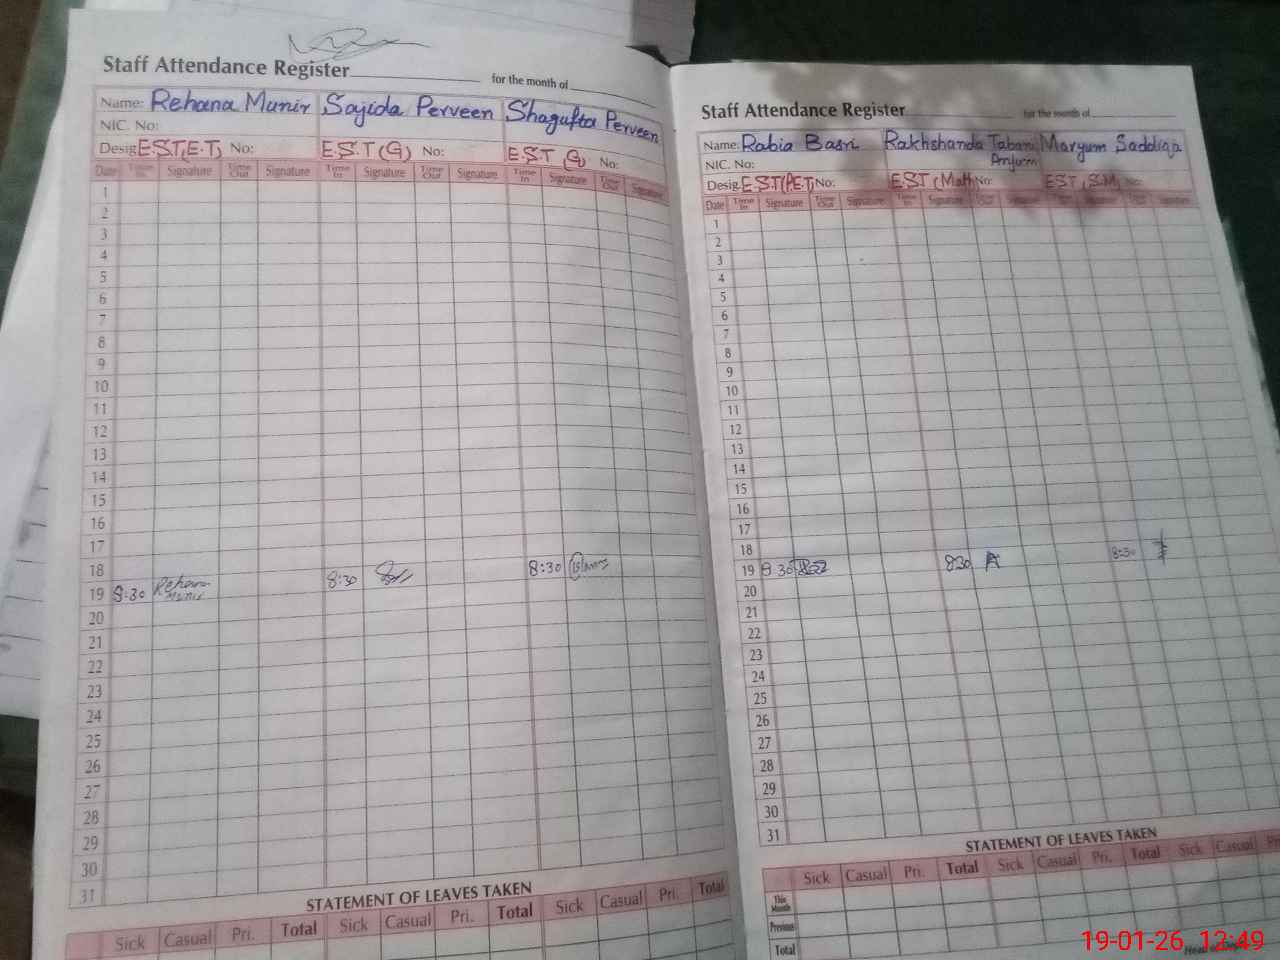 Staff Attendance Register for the month of
Name: Rehana Munir Sajida Perveen Shagufta Perveen
NIC. No:
Desig. E.S.T(E.T) No: E.S.T (G) No: E.S.T (G) No:
Date Time In Signature Time Out Signature Time In Signature Time Out Signature Time In Signature Time Out Signature
1
2
3
4
5
6
7
8
9
10
11
12
13
14
15
16
17
18
19 8:30 Rehana Munir 8:30 8:30
20
21
22
23
24
25
26
27
28
29
30
31
STATEMENT OF LEAVES TAKEN
Sick Casual Pri. Total Sick Casual Pri. Total Sick Casual Pri. Total
Staff Attendance Register for the month of
Name: Rabia Basri Rakhshanda Tabani Anjum Maryum Saddiqa
NIC. No:
Desig. E.S.T(P.E.T) No: EST (Math No: EST (S.M) No:
Date Time In Signature Time Out Signature Time In Signature Time Out Signature Time In Signature Time Out Signature
1
2
3
4
5
6
7
8
9
10
11
12
13
14
15
16
17
18
19 8 30 830 8:30
20
21
22
23
24
25
26
27
28
29
30
31
STATEMENT OF LEAVES TAKEN
Sick Casual Pri. Total Sick Casual Pri. Total Sick Casual
This Month
Previous
Total
19-01-26 12:49